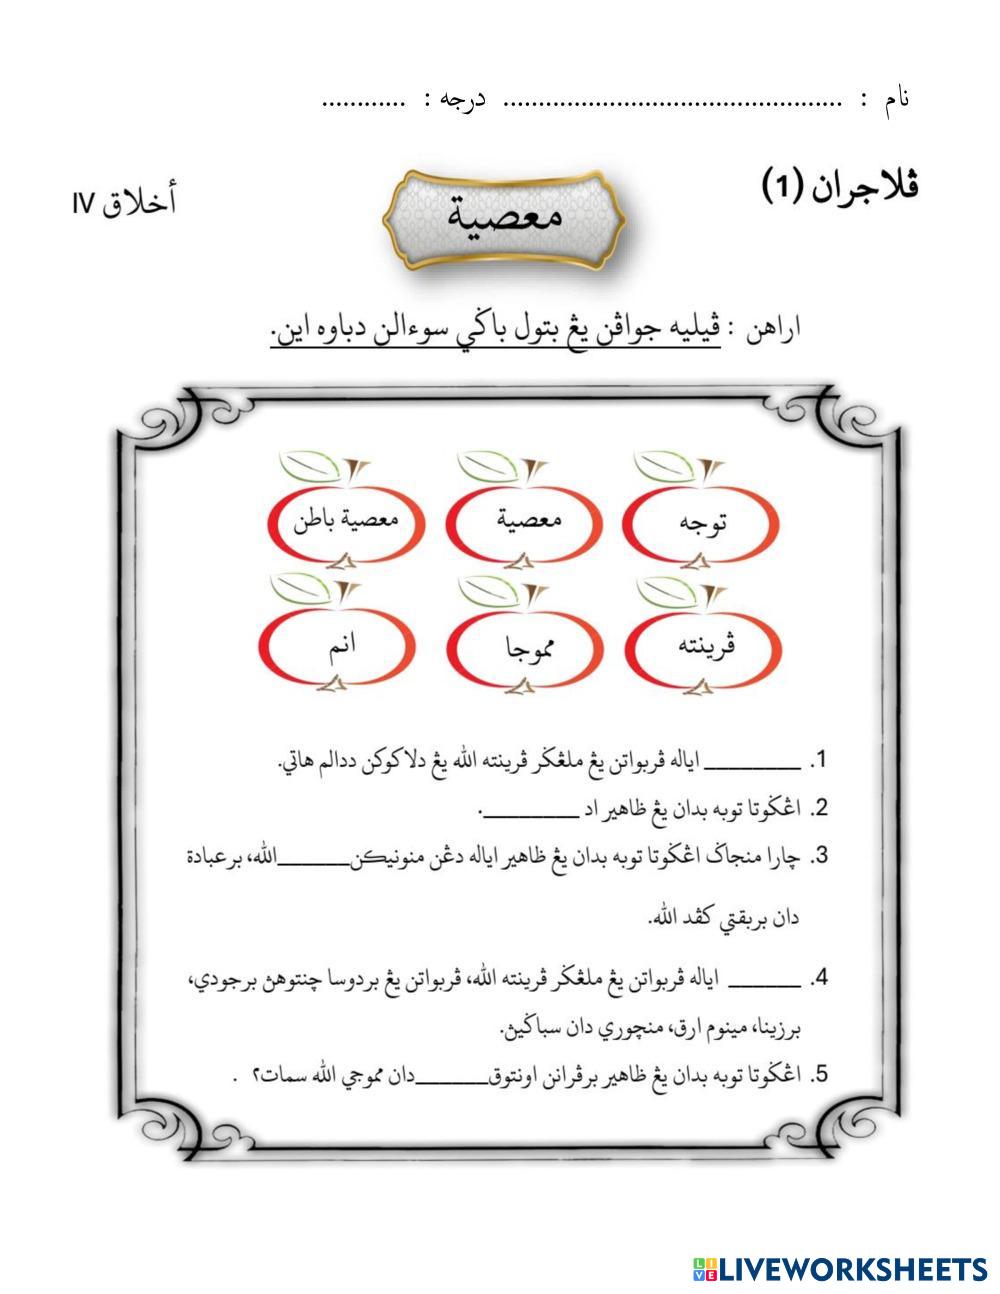 نام : ................................................ درجه : ............
ڤلاجران (1)
معصية
أخلاق IV
اراهن : ڤيليه جواڤن يڠ بتول باڬي سوءالن دباوه اين.
توجه
معصية
معصية باطن
ڤرينته
مموجا
انم
1. ________ اياله ڤربواتن يڠ ملڠݢر ڤرينته الله يڠ دلاكوكن ددالم هاتي.
2. اڠݢوتا توبه بدان يڠ ظاهير اد ________.
3. چارا منجاݢ اڠݢوتا توبه بدان يڠ ظاهير اياله دڠن منونيكن______الله، برعبادة
دان بربقتي كڤد الله.
4. ______ اياله ڤربواتن يڠ ملڠݢر ڤرينته الله، ڤربواتن يڠ بردوسا چنتوهڽ برجودي،
برزينا، مينوم ارق، منچوري دان سباݢيڽ.
5. اڠݢوتا توبه بدان يڠ ظاهير برڤرانن اونتوق______دان مموجي الله سمات٢ .
LIVEWORKSHEETS